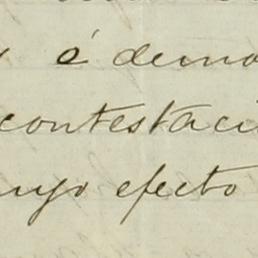 é demo
contestaci
cuyo efecto